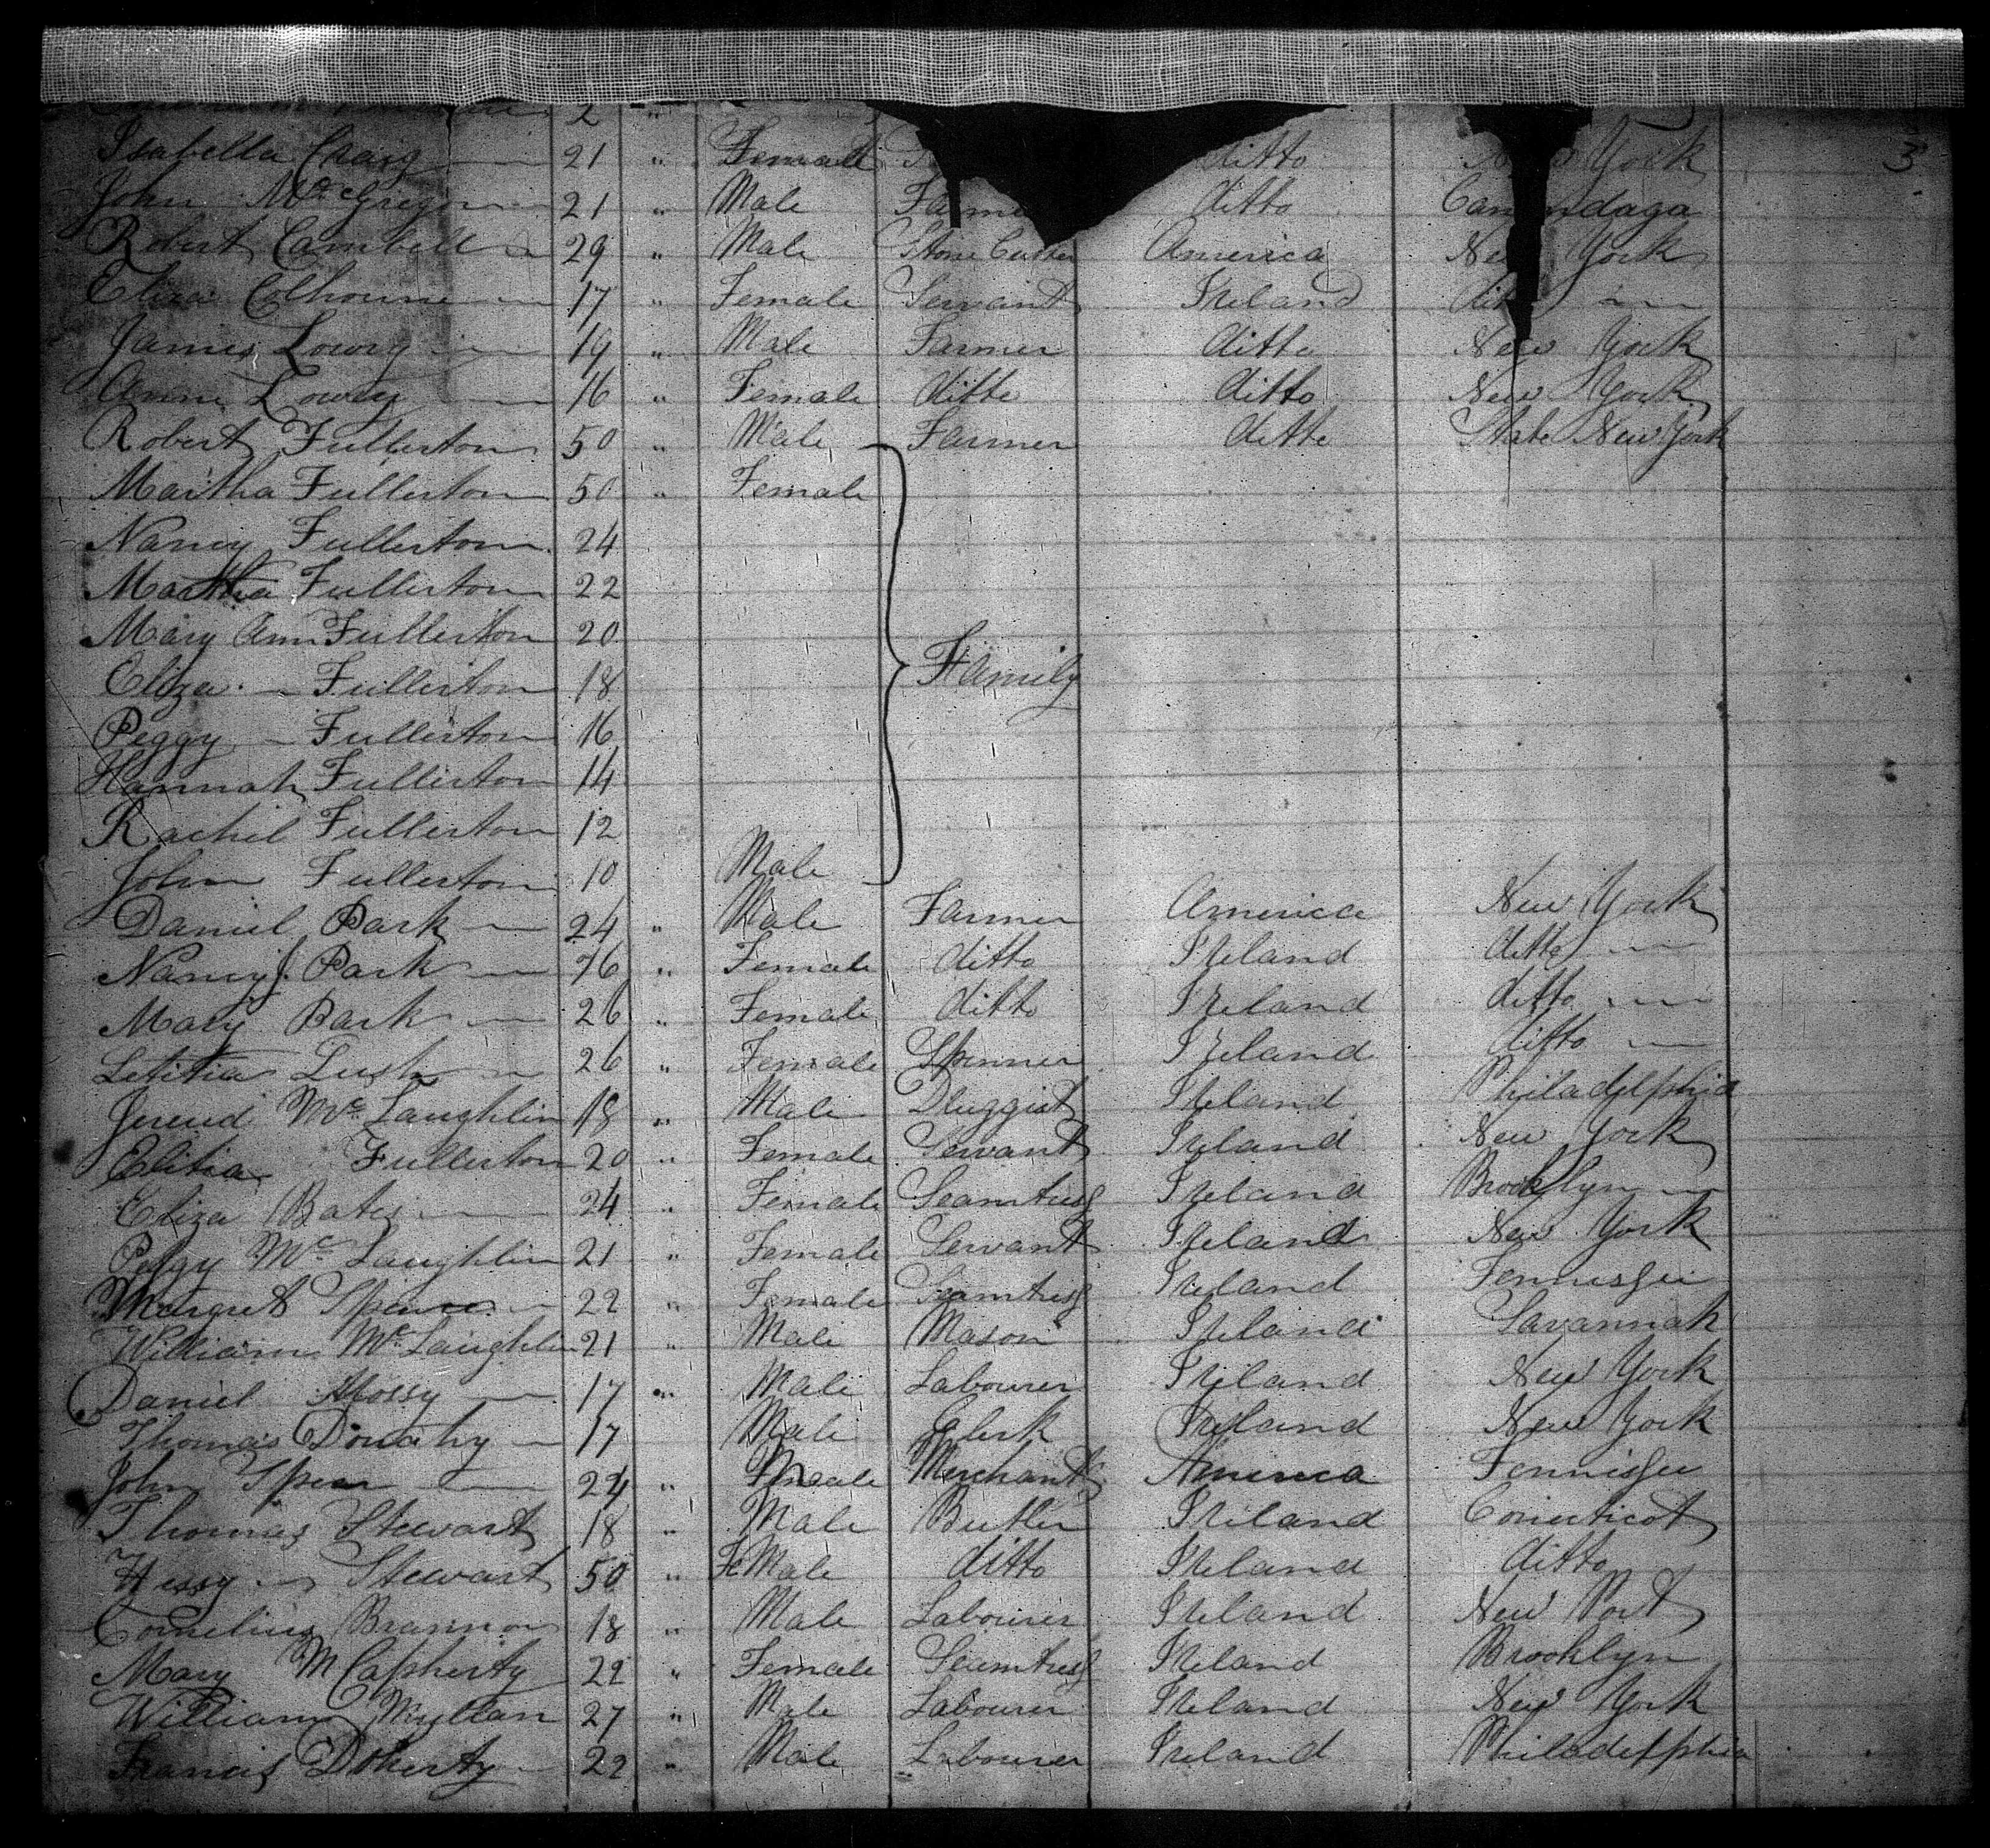 2 "
Isabella Craig 21 " Female ditto York 3
John McGregor 21 " Male Farmer ditto Canandaga
Robert Cambell 29 " Male Stone Cutter America New York
Eliza Colhoune 17 " Female Servant Ireland ditto
James Lowry 19 " Male Farmer ditto New York
Anne Lowry 16 " Female ditto ditto New York
Robert Fullerton 50 " Male Farmer ditto State New York
Martha Fullerton 50 " Female
Nancy Fullerton 24
Martha Fullerton 22
Mary Ann Fullerton 20
Eliza Fullerton 18 Family
Peggy Fullerton 16
Hannah Fullerton 14
Rachel Fullerton 12
John Fullerton 10 Male
Daniel Park 24 " Male Farmer America New York
Nancy J. Park 76 " Female ditto Ireland ditto
Mary Park 26 " Female ditto Ireland ditto
Letitia Lush 26 " Female Spinner Ireland ditto
McLaughlin 18 " Male Druggist Ireland Philadelphia
Fullerton 20 " Female Servant Ireland New York
Eliza Bates 24 " Female Seamtress Ireland Brooklyn
Peggy McLaughlin 21 " Female Servant Ireland New York
Margret Spence 22 " Female Seamtress Ireland Tennessee
William McLaughlin 21 " Male Mason Ireland Savannah
Daniel 17 " Male Labourer Ireland New York
Thomas Donahy 17 Male Clerk Ireland New York
John Spear 24 " Male Merchant America Tennissee
Thomas Stewart 18 " Male Butler Ireland Conecticot
Hessy Stewart 50 " FeMale ditto Ireland ditto
Cornelius Brannon 18 " Male Labourer Ireland New Port
Mary McCapherty 22 " Female Seamtress Ireland Brooklyn
William Myllan 27 " Male Labourer Ireland New York
Francis Doherty 22 " Male Labourer Ireland Philadelphia